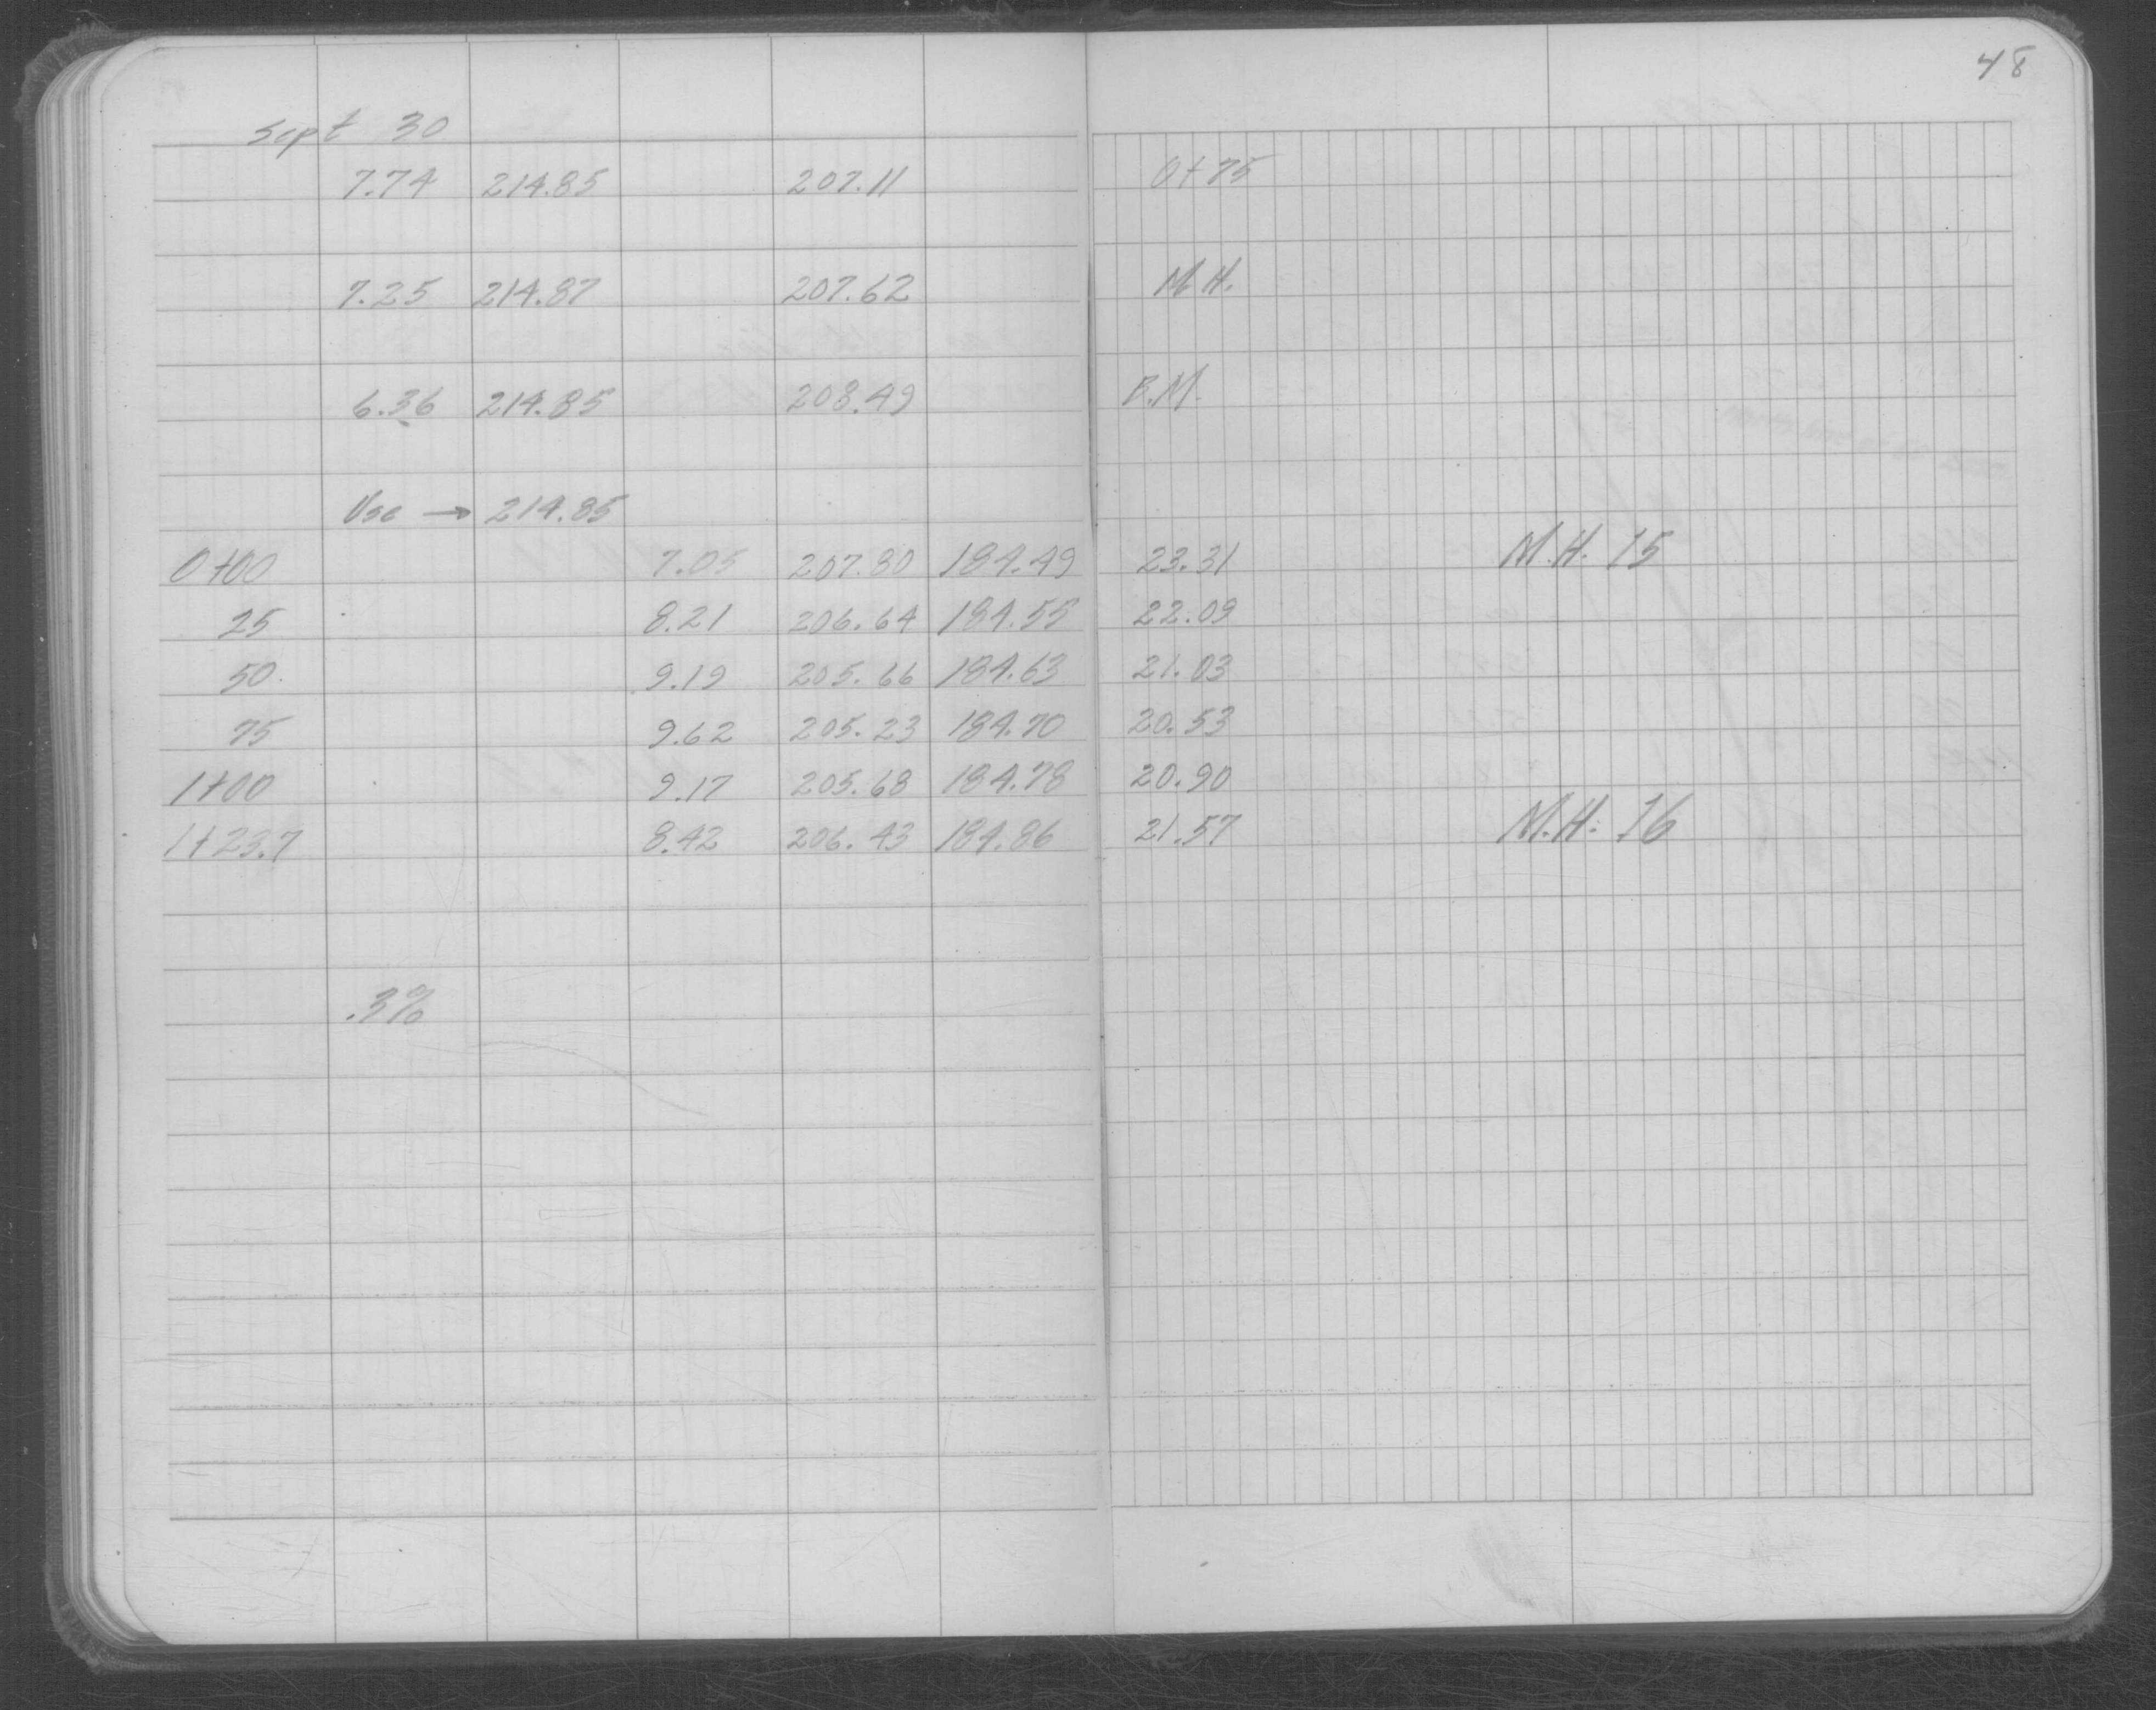 48
Sept 30
7.74 214.85 207.11 0+75
7.25 214.87 207.62 M.H.
6.36 214.85 208.49 B.M.
Use → 214.85
0+00 7.05 207.80 184.49 23.31 M.H. 15
25 8.21 206.64 184.55 22.09
50 9.19 205.66 184.63 21.03
75 9.62 205.23 184.70 20.53
1+00 9.17 205.68 184.78 20.90
1+23.7 8.42 206.43 184.86 21.57 M.H. 16
.3%